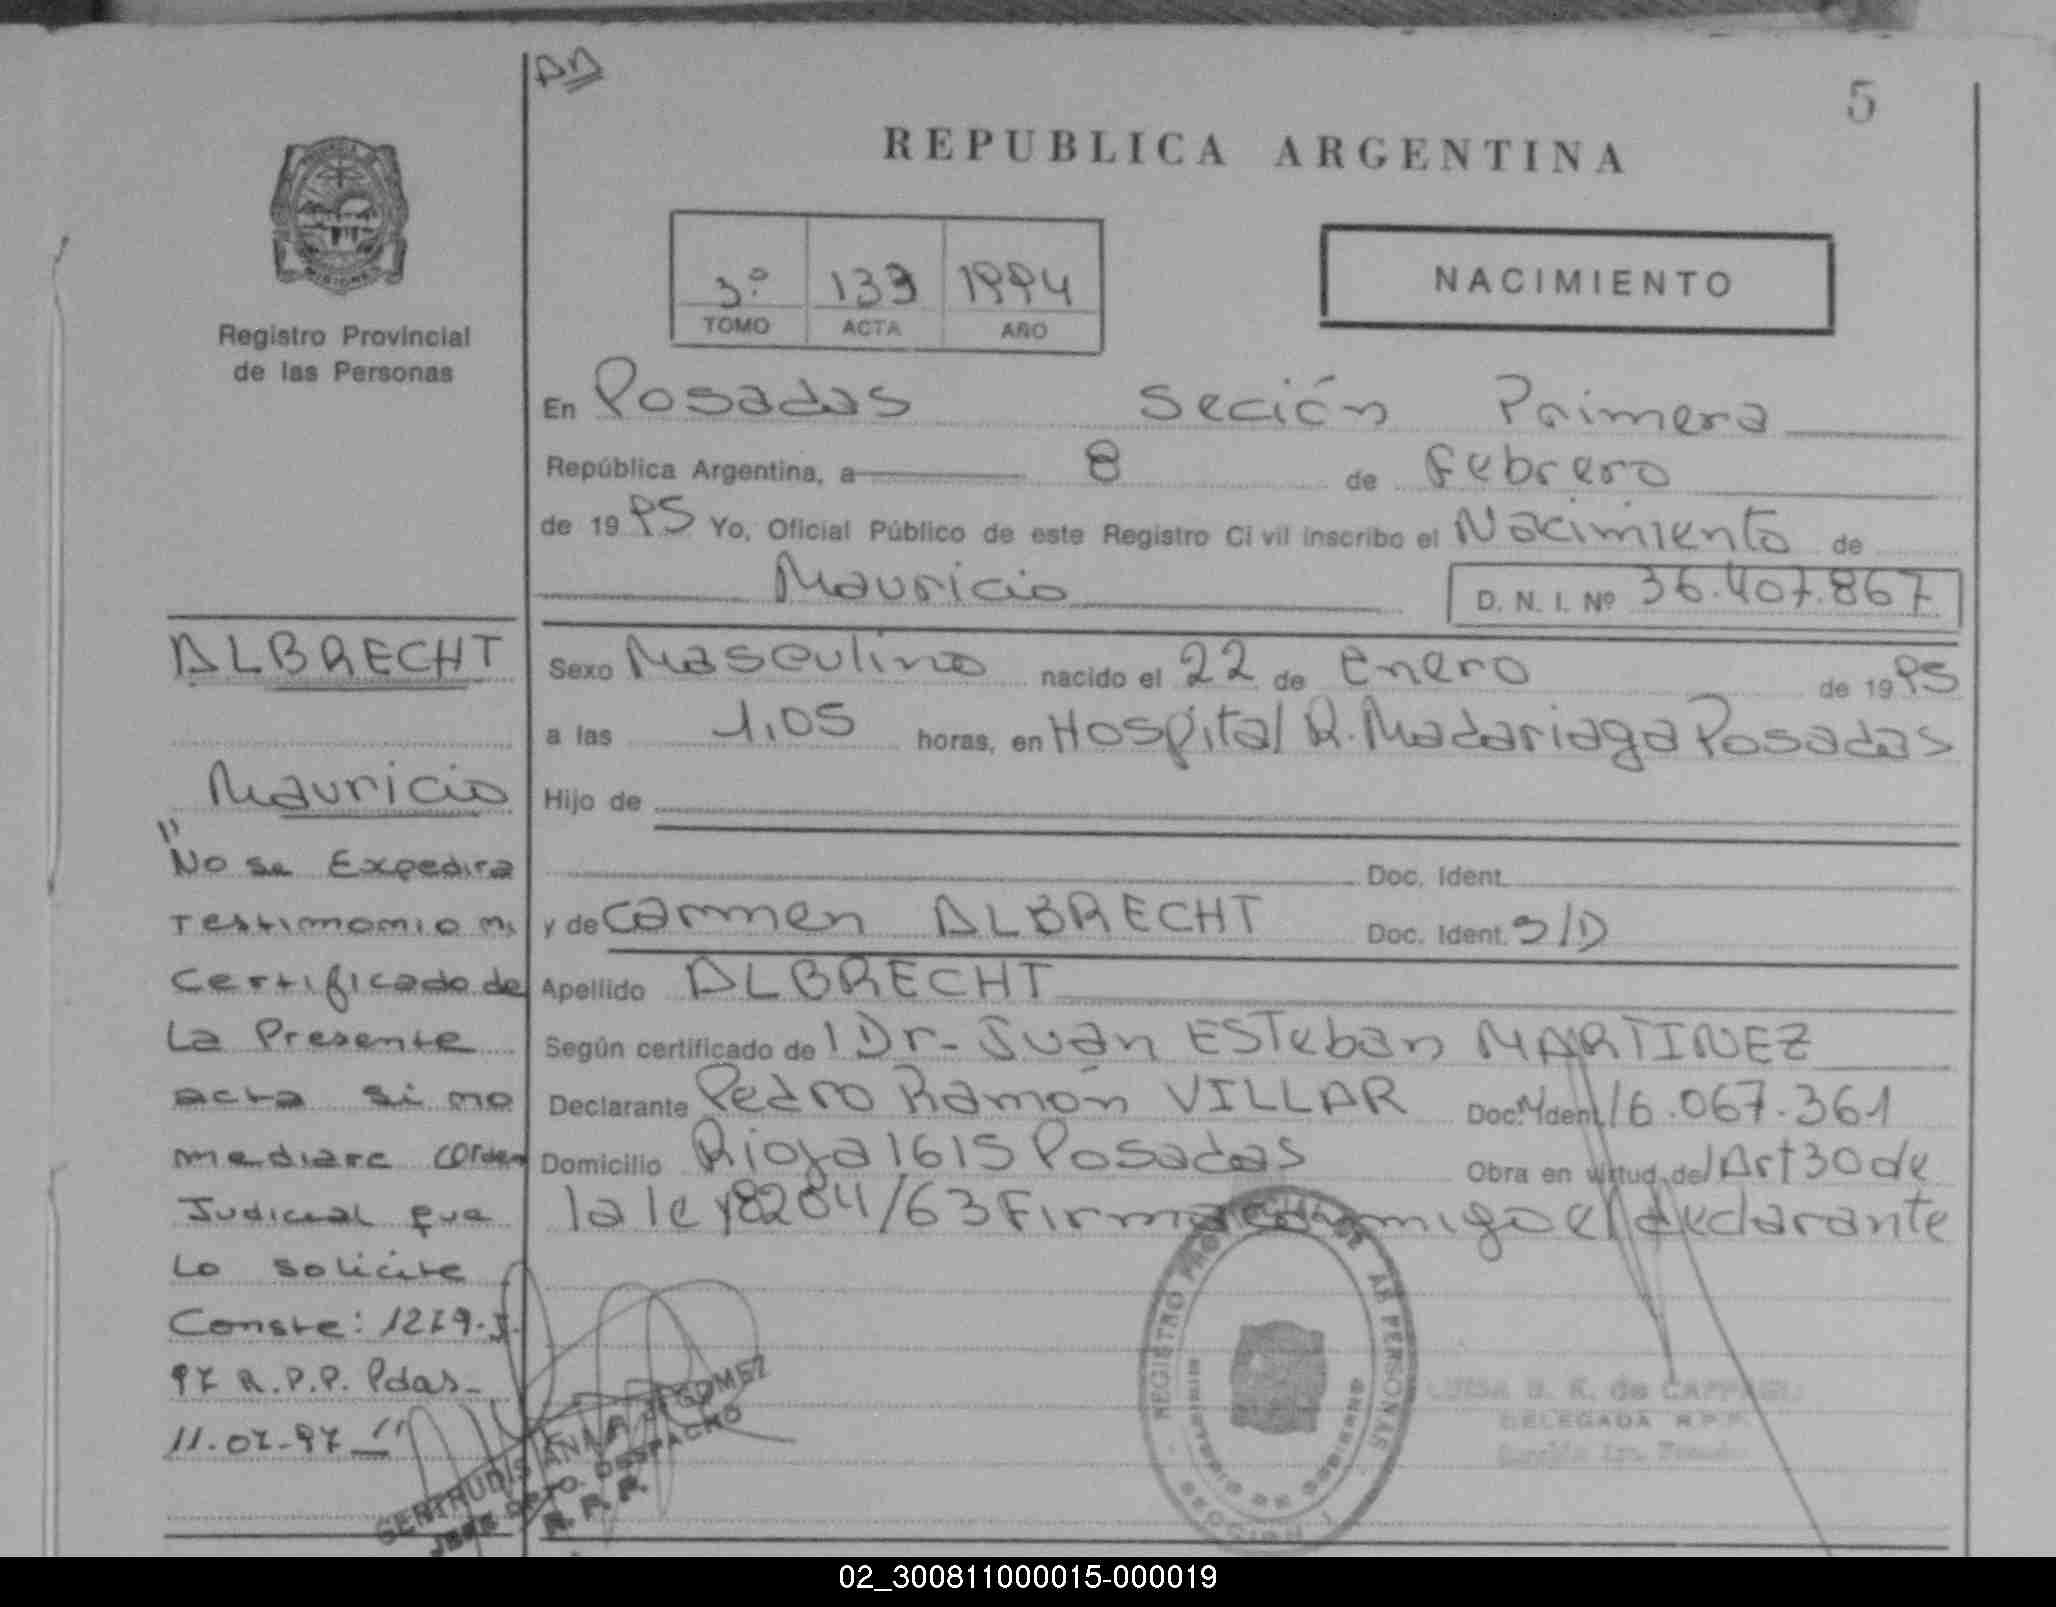 AD
5
REPUBLICA ARGENTINA
3º 133 1994
TOMO ACTA AÑO
NACIMIENTO
MISIONES
Registro Provincial
de las Personas
En Posadas Seción Primera
República Argentina, a 8 de Febrero
de 1995 Yo, Oficial Público de este Registro Civil inscribo el Nacimiento de
Mauricio D. N. I. Nº 36.407.867
ALBRECHT
Sexo Masculino nacido el 22 de Enero de 1995
a las 1,05 horas, en Hospital R. Madariaga Posadas
Mauricio
Hijo de
Doc. Ident.
y de Carmen ALBRECHT Doc. Ident. S/D
Apellido ALBRECHT
Según certificado del Dr- Juan ESTeban MARTINEZ
Declarante Pedro Ramón VILLAR Doc. Ident. 16.067.361
Domicilio Rioja 1615 Posadas Obra en virtud del Art 30 de
la ley 8204/63 Firma conmigo el declarante
"No se Expedira
Testimonio ni
Certificado de
La Presente
acta si no
mediare orden
Judicial que
Lo solicite
Conste: 1279-J-
97 R.P.P. Pdas-
11-07-97-"
GERTRUDIS ANA GOMEZ
JEFE DPTO. DESPACHO
R. P. P.
REGISTRO PROVINCIAL DE LAS PERSONAS
MINISTERIO DE GOBIERNO
SECCION 1
LUISA de
DELEGADA R.P.P.
02_300811000015-000019